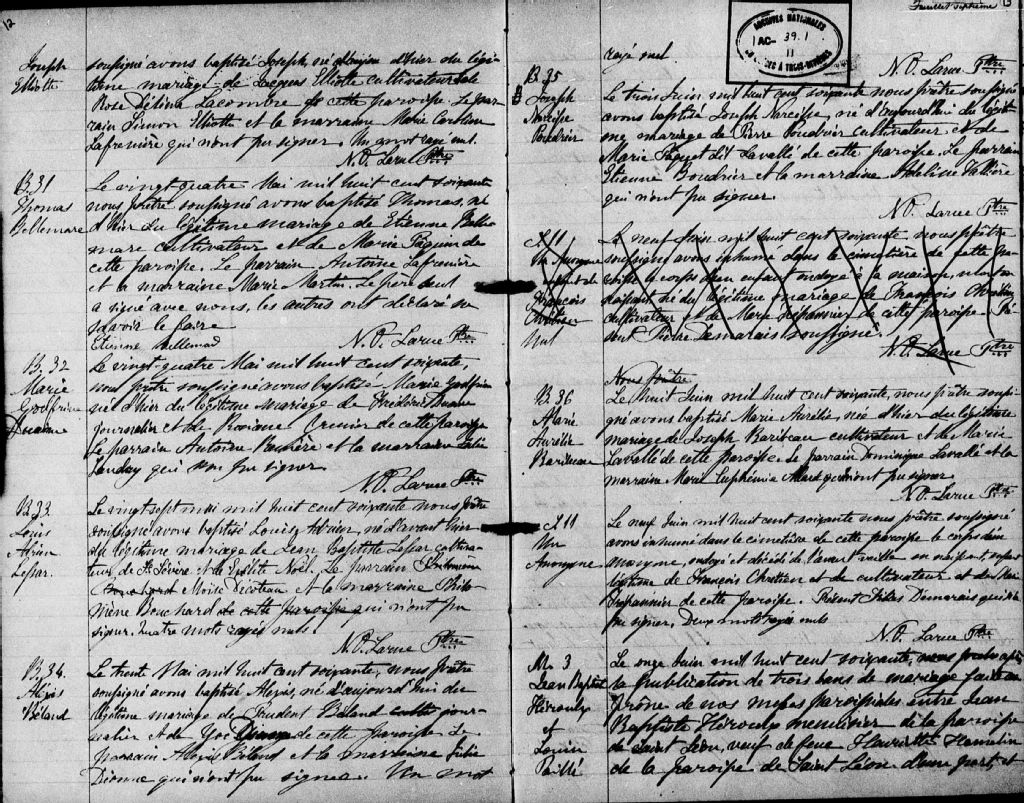 12
Joseph
Elliotte
soussigné avons baptisé Joseph, né d'hier du légi-
time mariage de Jacques Elliotte cultivateur et de
Rose Délina Lacombre de cette paroisse. Le par-
rain Simon Elliotte et la marraine Marie Caroline
Lafrenière qui n'ont pu signer. Un mot rayé nul.
N.O. Larue Ptre
B. 31
Thomas
Bellemare
Le vingt-quatre Mai mil huit cent soixante
nous prêtre soussigné avons baptisé Thomas, né
d'hier du légitime mariage de Etienne Belle
mare cultivateur et de Marie Paquin de
cette paroisse. Le parrain Antoine Lafrenière
et la marraine Marie Martin. Le père seul
a signé avec nous, les autres ont déclaré ne
savoir le faire
Etienne Bellemare
N.O. Larue Ptre
B. 32
Marie
Godfrine
Le vingt-quatre Mai mil huit cent soixante,
nous prêtre soussigné avons baptisé Marie Godfrine
née d'hier du légitime mariage de Frédéric
journalier et de de cette paroisse
Le parrain Antoine et la marraine
Landry qui n'ont pu signer
N.O. Larue Ptre
B. 33
Louis
Adrien
Lesar.
Le vingt sept mai mil huit cent soixante nous prêtre
soussigné avons baptisé Louis Adrien, né d'avant hier
du légitime mariage de Jean Baptiste Lesar cultiva-
teur de St Sévère et de Noël. Le parrain
Bouchard Moïse Décoteau et la marraine Philo-
mène Bouchard de cette paroisse qui n'ont pu
signer. Quatre mots rayés nuls.
N.O. Larue Ptre
B. 34.
Alexis
Béland
Le trente Mai mil huit cent soixante, nous prêtre
soussigné avons baptisé Alexis, né d'aujourd'hui du
légitime mariage de Prudent Béland jour-
nalier et de Zoé de cette paroisse Le
parrain Alexis Béland et la marraine Julie
Dionne qui n'ont pu signer. Un mot
Feuillet septième 13
ARCHIVES NATIONALES
AC- 39.1
11
A TROIS-RIVIERES
rayé nul.
N.O. Larue Ptre
B. 35
Joseph
Narcisse
Boudrier
Le trois Juin mil huit cent soixante nous prêtre soussigné
avons baptisé Joseph Narcisse, né d'aujourd'hui du légiti-
me mariage de Pierre Boudrier cultivateur et de
Marie Paquet dit Lavallé de cette paroisse. Le parrain
Etienne Boudrier et la marraine Adeline Vallière
qui n'ont pu signer.
N.O. Larue Ptre
S. 11
Un Anonyme
enfant de
François
Chrétien
Nul
Le neuf Juin mil huit cent soixante nous prêtre
soussigné avons inhumé dans le cimetière de cette pa-
roisse le corps d'un enfant ondoyé à la maison,
naissant né du légitime mariage de François Chrétien
cultivateur et de Marie Trépannier de cette paroisse. Pré-
sent Pierre Desmarais soussigné.
N.O. Larue Ptre
Nous prêtre
B. 36
Marie
Aurélie
Baribeau
Le huit Juin mil huit cent soixante, nous prêtre soussi-
gné avons baptisé Marie Aurélie née d'hier du légitime
mariage de Joseph Baribeau cultivateur et de Marie
Lavallé de cette paroisse. Le parrain Dominique Lavallé et la
marraine Marie Euphémie qui n'ont pu signer
N.O. Larue Ptre
S. 11
Un
Anonyme
Le neuf Juin mil huit cent soixante nous prêtre soussigné
avons inhumé dans le cimetière de cette paroisse le corps d'un
anonyme, ondoyé et décédé de l'avant veille en naissant, enfant
légitime de François Chrétien et de cultivateur et de Marie
Trépannier de cette paroisse. Présent Desmarais qui n'a
pu signer. Deux mots rayés nuls
N.O. Larue Ptre
M. 3
Jean Baptiste
Héroulx
et
Louise
Paillé
Le onze Juin mil huit cent soixante, nous prêtre après
la publication de trois bans de mariage fait au
prône de nos messes paroissiales entre Jean
Baptiste Héroulx menuisier de la paroisse
de Saint Léon, veuf de feue Henriette Hamelin
de la paroisse de Saint Léon d'une part, et